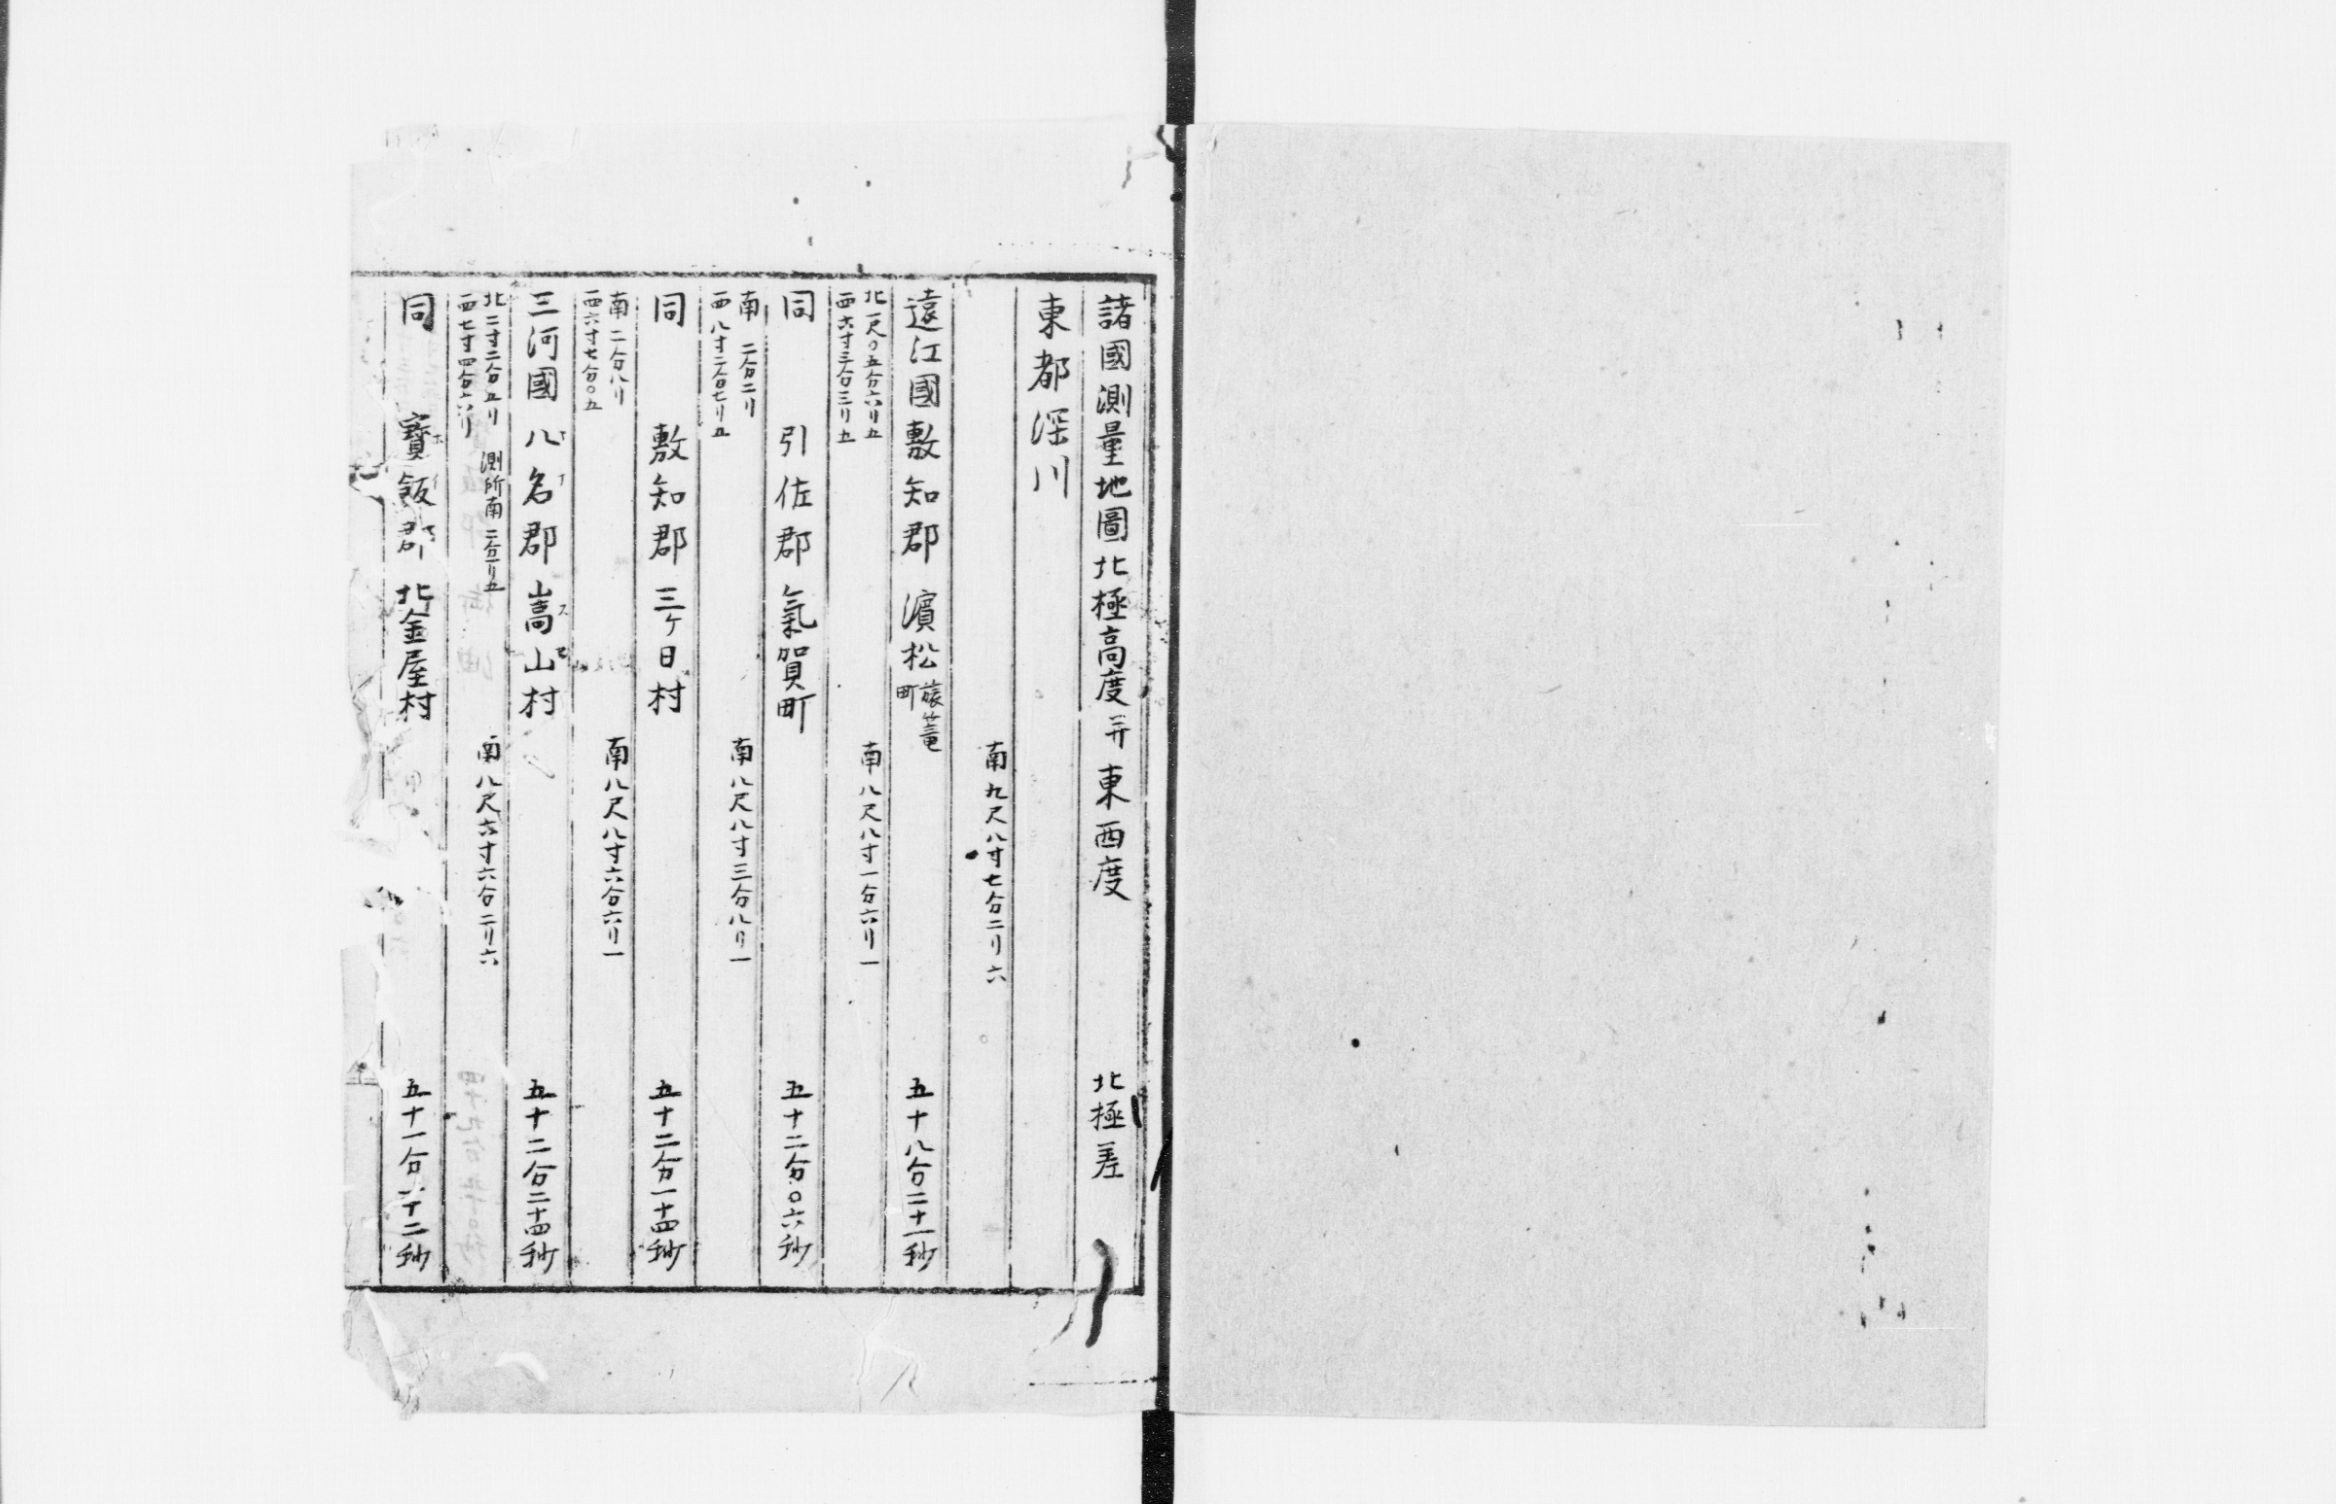 諸國測量地圖北極高度并東西度 北極差
東都深川
南九尺八寸七分二リ六
遠江國敷知郡 濵松旅篭町 五十八分二十一秒
北一尺〇五分六リ五
西六寸三分三リ五
南八尺八寸一分六リ一
同 引佐郡 氣賀町 五十二分〇六秒
南 二分二リ
西八寸二分七リ五
南八尺八寸三分八リ一
同 敷知郡 三ケ日村 五十二分一十四秒
南二分八リ
西六寸七分〇五
南八尺八寸六分六リ一
三河國 八名郡 嵩山村 五十二分二十四秒
ヤナ スセ
北二寸二分五リ 測所南二分一リ五
西七寸四分六リ
南八尺六寸六分二リ六
同 寶飯郡 北金屋村 五十一分 十二秒
ホイ